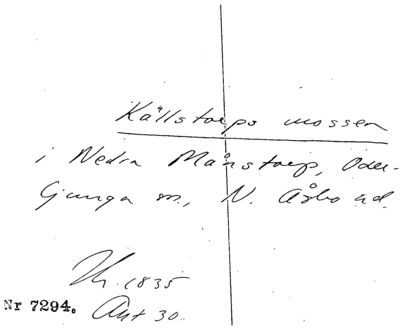 Källstorps mossen
i Nedra Månstorp, Oder-
ljunga sn., N. Åsbo hd.
Th. 1835
Nr 7294. Ant 30.